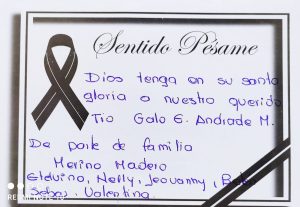 Sentido Pésame
Dios tenga en su santa
gloria a nuestro querido
Tio Galo E. Andrade M.
De parte de familia
Merino Madero
Elduino, Nelly, Jeovanny,
Sebas, Valentina.